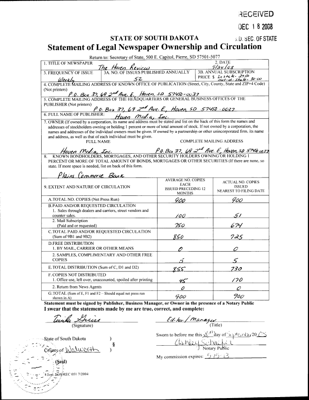 RECEIVED
DEC 1 8 2008
S.D. SEC. OF STATE
STATE OF SOUTH DAKOTA
Statement of Legal Newspaper Ownership and Circulation
Return to: Secretary of State, 500 E. Capitol, Pierre, SD 57501-5077
1. TITLE OF NEWSPAPER
2. DATE
The Hoven Review
1. FREQUENCY OF ISSUE
3A. NO. OF ISSUES PUBLISHED ANNUALLY
3B. ANNUAL SUBSCRIPTION
Weekly
52
PRICE $
4. COMPLETE MAILING ADDRESS OF KNOWN OFFICE OF PUBLICATION (Street, City, County, State and ZIP+4 Code)
(Not printers)
5. COMPLETE MAILING ADDRESS OF THE HEADQUARTERS OR GENERAL BUSINESS OFFICES OF THE
PUBLISHER (Not printers)
6. FULL NAME OF PUBLISHER:
Hoven Media, Inc.
7. OWNER (If owned by a corporation, its name and address must be stated and list on the back of this form the names and
addresses of stockholders owning or holding 1 percent or more of total amount of stock. If not owned by a corporation, the
names and addresses of the individual owners must be given. If owned by a partnership or other unincorporated firm, its name
and address, as well as that of each individual must be given.
FULL NAME
COMPLETE MAILING ADDRESS
Hoven Media, Inc.
8. KNOWN BONDHOLDERS, MORTGAGEES, AND OTHER SECURITY HOLDERS OWNING OR HOLDING 1
PERCENT OR MORE OF TOTAL AMOUNT OF BONDS, MORTGAGES OR OTHER SECURITIES (If there are none, so
state. If more space is needed, list on back of this form.
Plains Commerce Bank
9. EXTENT AND NATURE OF CIRCULATION
AVERAGE NO. COPIES
EACH
ISSUED PRECEDING 12
MONTHS
ACTUAL NO. COPIES
ISSUED
NEAREST TO FILING DATE
A. TOTAL NO. COPIES (Net Press Run)
900
900
B. PAID AND/OR REQUESTED CIRCULATION
1. Sales through dealers and carriers, street vendors and
counter sales.
100
51
2. Mail Subscription
(Paid and/or requested)
750
674
C. TOTAL PAID AND/OR REQUESTED CIRCULATION
(Sum of 9B1 and 9B2)
850
725
D. FREE DISTRIBUTION
1. BY MAIL, CARRIER OR OTHER MEANS
0
0
2. SAMPLES, COMPLIMENTARY AND OTHER FREE
COPIES
5
5
E. TOTAL DISTRIBUTION (Sum of C, D1 and D2)
855
730
F. COPIES NOT DISTRIBUTED
1. Office use, left over, unaccounted, spoiled after printing
45
170
2. Return from News Agents
0
0
G. TOTAL (Sum of E, F1 and F2 - Should equal net press run
shown in A)
900
900
Statement must be signed by Publisher, Business Manager, or Owner in the presence of a Notary Public
I swear that the statements made by me are true, correct, and complete:
(Signature)
(Title)
State of South Dakota )
County of Walworth )
Notary Public
(Seal)
My commission expires: